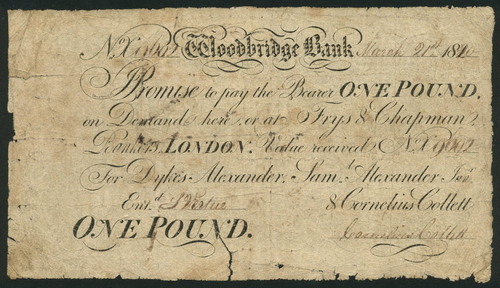 Woodbridge Bank March 21st 18
I Promise to pay the Bearer ONE POUND,
on Demand here, or at Frys & Chapman,
Bankers, LONDON. Value received
For Dykes Alexander, Saml. Alexander Junr.
Entd. & Cornelius Collett
ONE POUND. Cornelius Collett